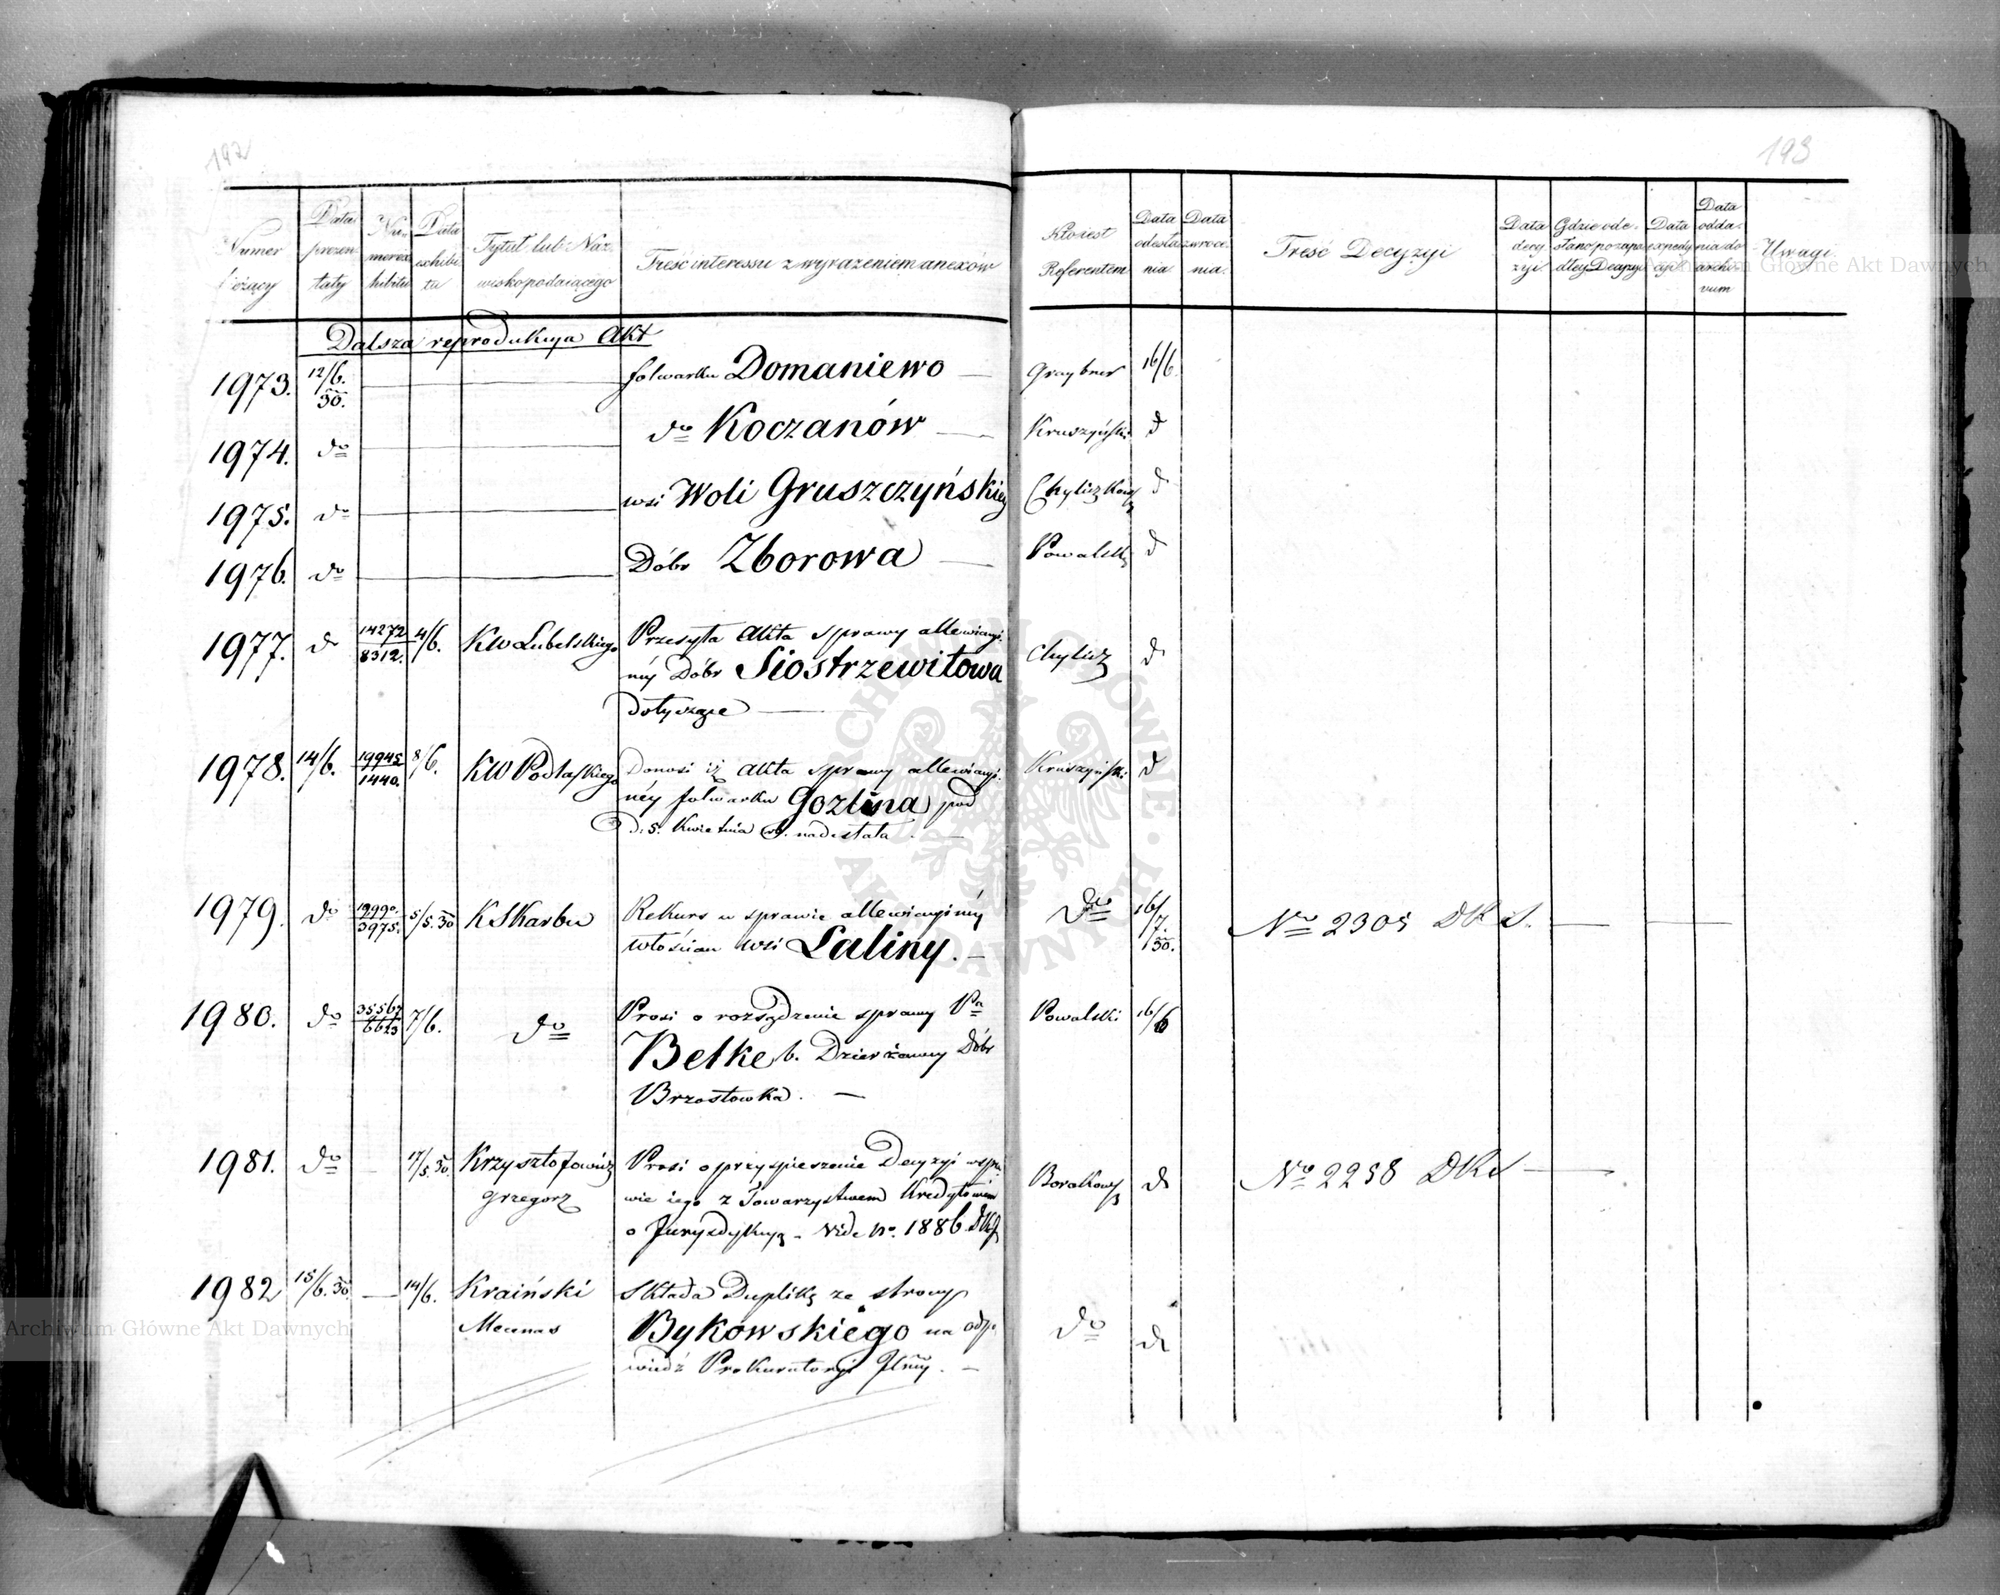 192
193
Numer bieżący
Data prezentaty
Numer exhibitu
Data exhibitu
Tytuł lub Nazwisko podaiącego
Treść interessu z wyrażeniem anexów
Kto iest Referentem
Data odesłania
Data zwrocenia
Treść Decyzyi
Data decyzyi
Gdzie odesłano po zapadłey Decyzyi
Data expedycyi
Data oddania do archivum
Uwagi
Dalsza reprodukcya Akt
1973. 12/6. 30. folwarku Domaniewo — Graybner 16/6.
1974. do do Koczanów — Kruszyński d
1975. do wsi Woli Gruszczyńskiey d
1976. do Dóbr Zborowa — Powalski d
1977. d 14272/8312. 4/6. KW Lubelskiego Przesyła akta sprawy allewiacyi- Chylicz d
néy Dóbr Siostrzewitowa
dotyczące —
1978. 14/6. 19945/1440. 8/6. KW Podlaskiego Donosi iż akta sprawy allewiacyi- Kruszyński d
néy folwarku Gozlina pod
d. 5. Kwietnia nadesłała. —
1979. do 5/5.30 K Skarbu Rekurs w sprawie allewiacyinéy do 16/7. 30. No 2305 DKS. —
włościan wsi Laliny. —
1980. do 7/6. do Prosi o rozsądzenie sprawy Pa Powalski 16/6
Belke b. Dzierżawcy Dóbr
Brzostowka. —
1981. do — 17/5.30 Krzysztofowicz Prosi o przyspieszenie Decyzyi w spra- d No 2258 DKS —
Grzegorz wie iego z Towarzystwem Kredytowém
o Jurysdykcyą - Vide No. 1886
1982 15/6.30. — 14/6. Kraiński Składa Duplikę ze strony do d
Mecenas Bykowskiego na odpo-
wiedź Prokuratoryi
Archiwum Główne Akt Dawnych
Archiwum Główne Akt Dawnych
ARCHIWUM GŁÓWNE · AKT DAWNYCH ·